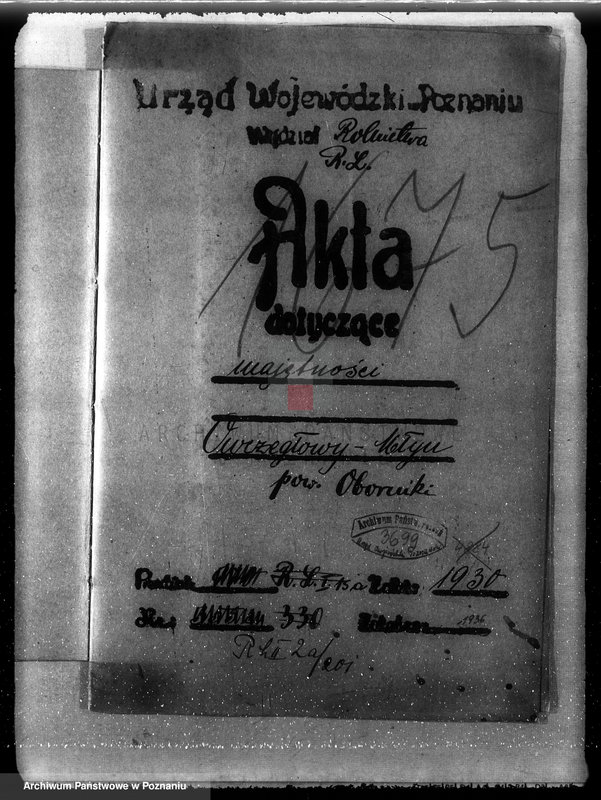 Urząd Wojewódzki w Poznaniu
Wydział Rolnictwa
R.L.
1675
Akta
dotyczące
majętności
Owczegłowy - Młyn
pow. Oborniki
Archiwum Państw. Poznań
3699
R.L. I 15 a 1930
Nr. 330 1936
R L II 2a/201
Archiwum Państwowe w Poznaniu